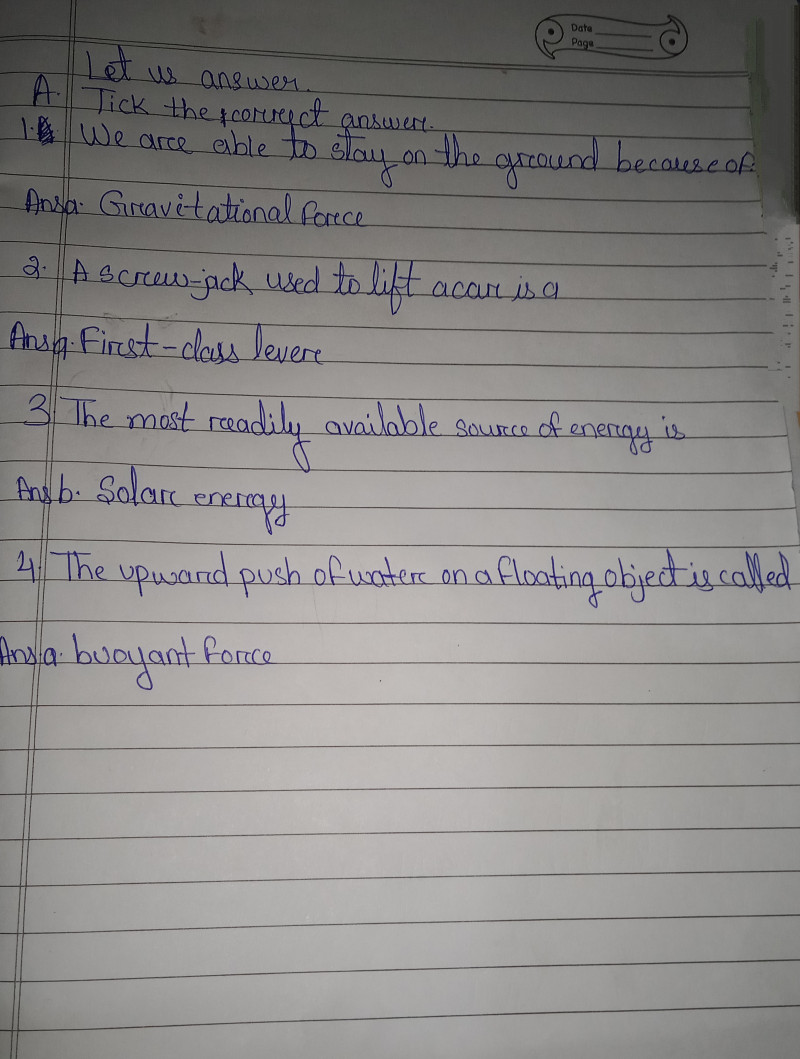 Date
Page
Let us answer.
A. Tick the correct answer.
1. We are able to stay on the ground because of
Ans a. Gravitational force
2. A screw-jack used to lift a car is a
Ans a. First-class lever
3 The most readily available source of energy is
Ans b. Solar energy
4 The upward push of water on a floating object is called
Ans a. buoyant force